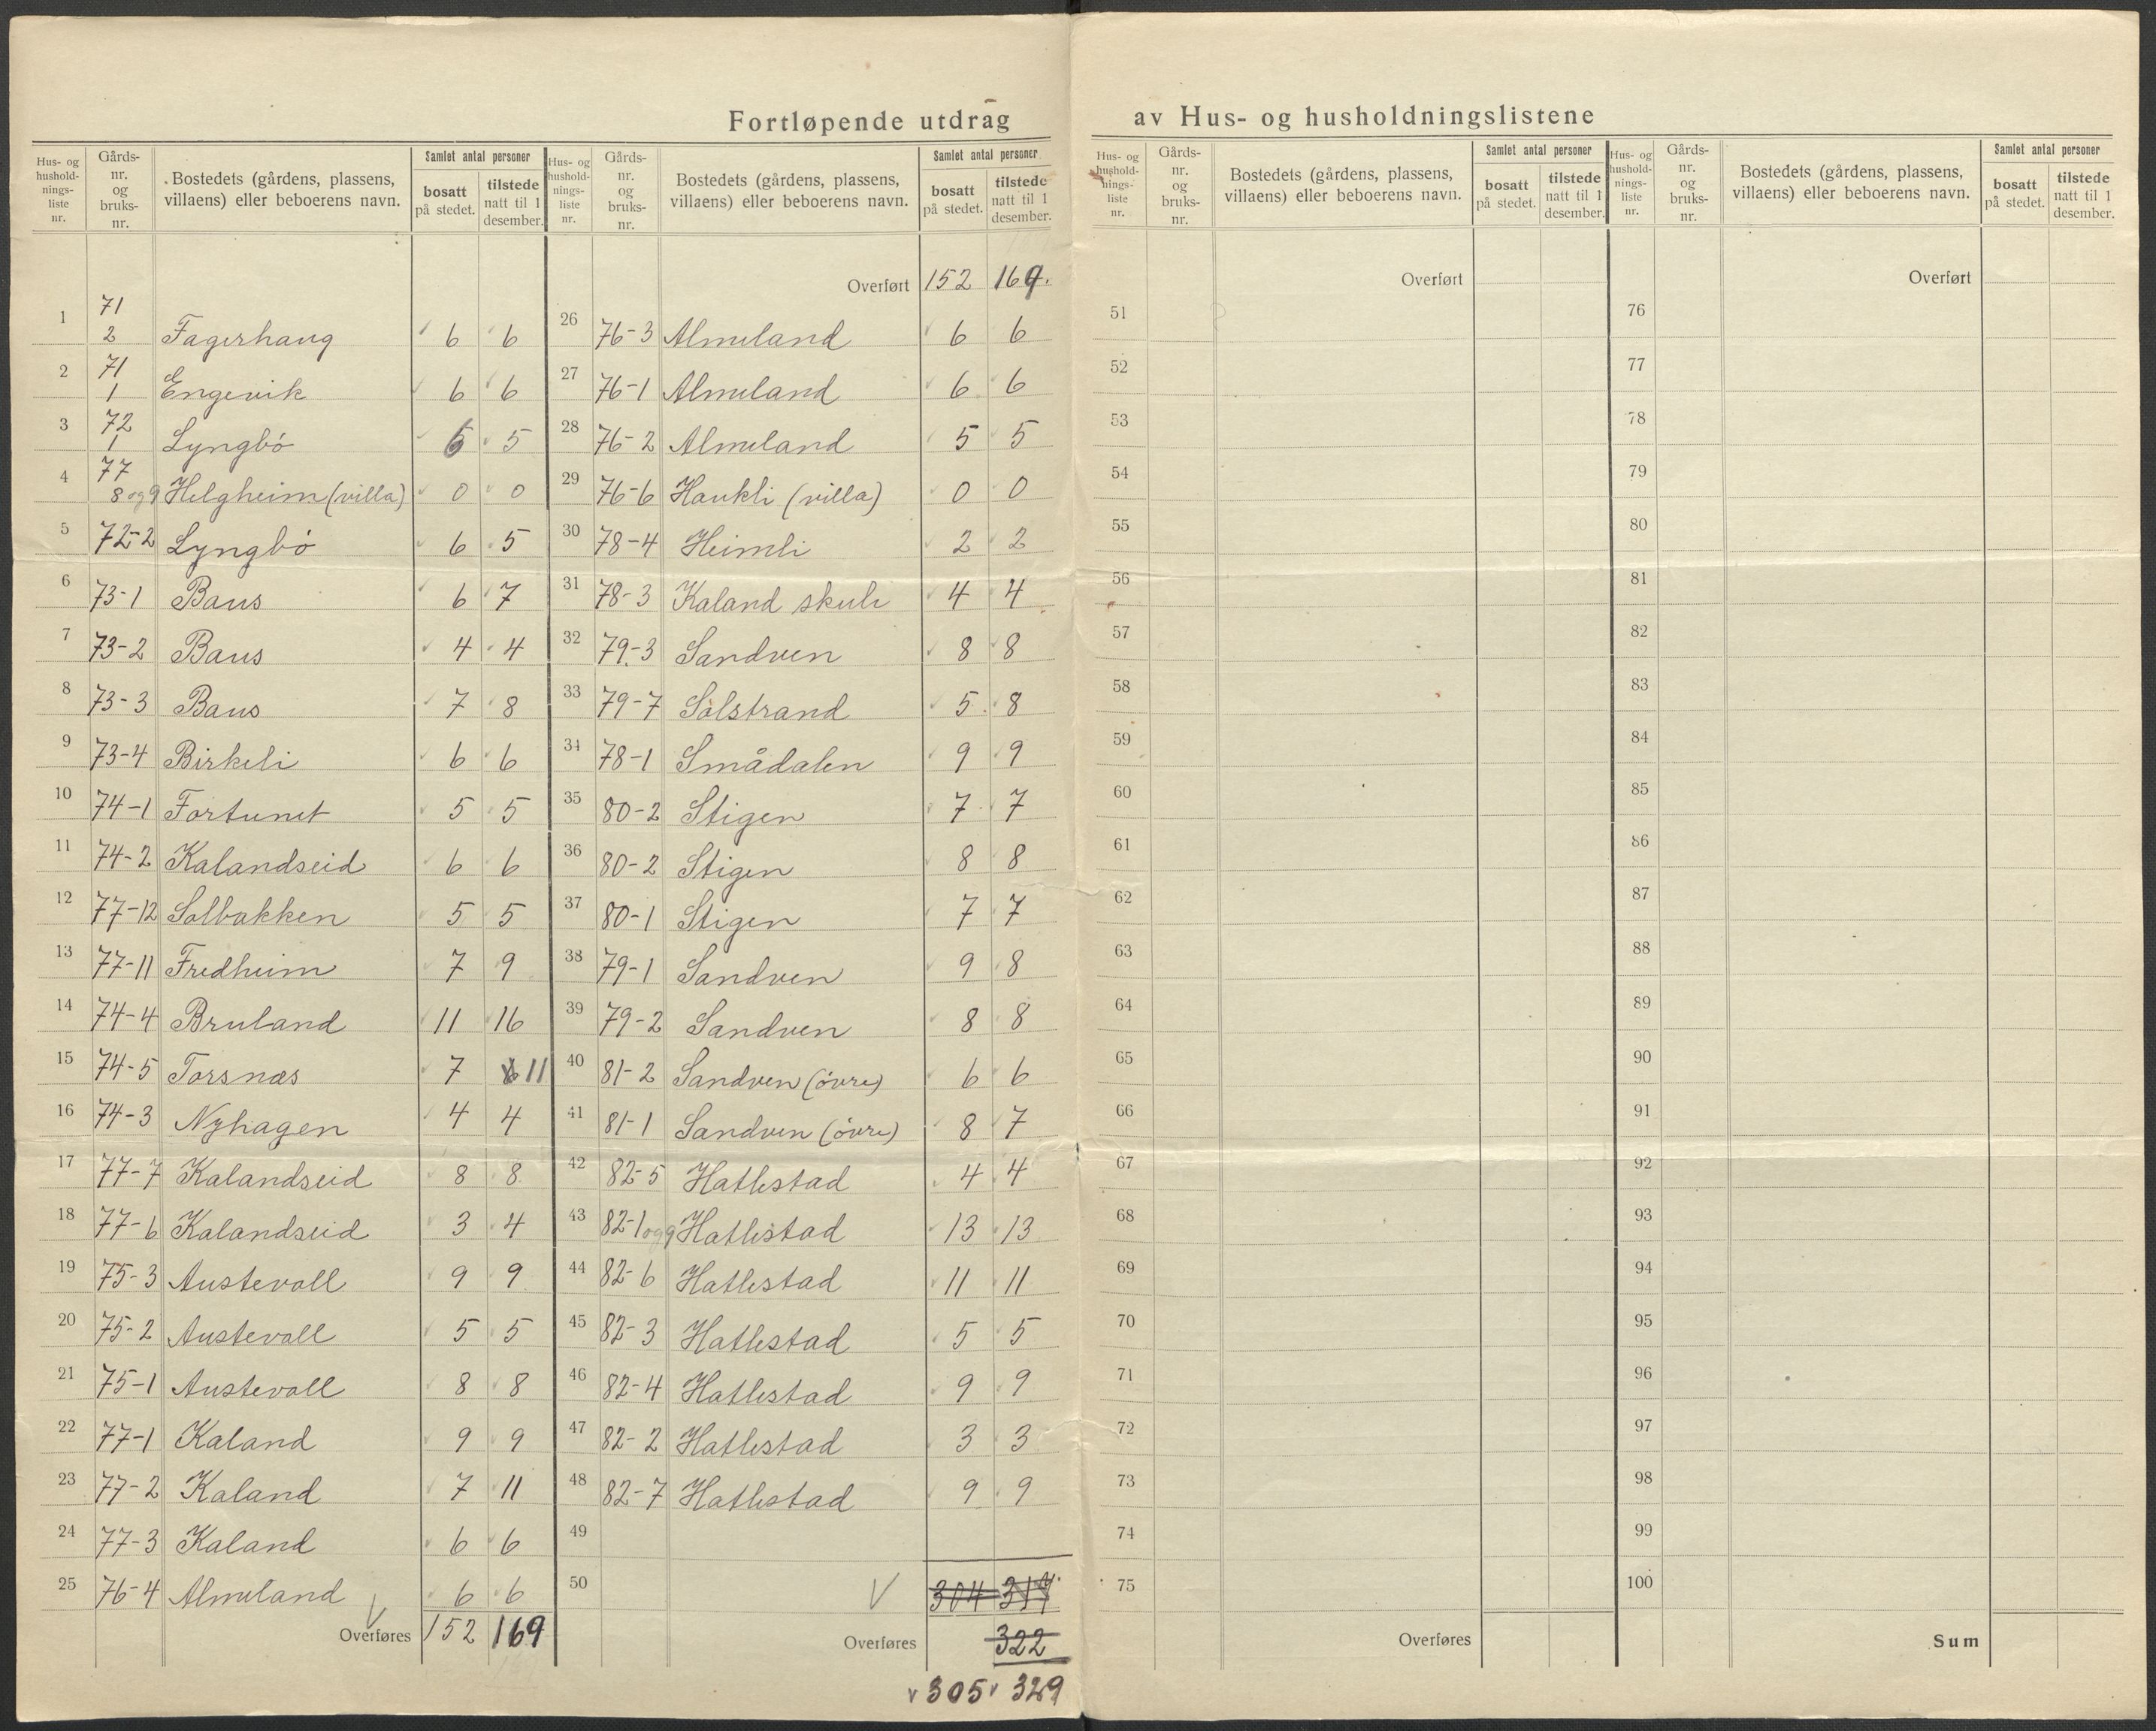 Fortløpende utdrag av Hus- og husholdningslistene
Hus- og hushold-nings-liste nr. Gårds-nr. og bruks-nr. Bostedets (gårdens, plassens, villaens) eller beboerens navn. Samlet antal personer bosatt på stedet. tilstede natt til 1 desember.
1 71 2 Fagerhaug 6 6
2 71 1 Engevik 6 6
3 72 1 Lyngbö 5 5
4 77 8 og 9 Helgheim (villa) 0 0
5 72-2 Lyngbö 6 5
6 73-1 Baus 6 7
7 73-2 Baus 4 4
8 73-3 Baus 7 8
9 73-4 Birkeli 6 6
10 74-1 Fortunet 5 5
11 74-2 Kalandseid 6 6
12 77-12 Solbakken 5 5
13 77-11 Fredheim 7 9
14 74-4 Bruland 11 16
15 74-5 Torsnæs 7 11
16 74-3 Nyhagen 4 4
17 77-7 Kalandseid 8 8
18 77-6 Kalandseid 3 4
19 75-3 Austevoll 9 9
20 75-2 Austevoll 5 5
21 75-1 Austevoll 8 8
22 77-1 Kaland 9 9
23 77-2 Kaland 7 11
24 77-3 Kaland 6 6
25 76-4 Almeland 6 6
Overføres 152 169
Hus- og hushold-nings-liste nr. Gårds-nr. og bruks-nr. Bostedets (gårdens, plassens, villaens) eller beboerens navn. Samlet antal personer bosatt på stedet. tilstede natt til 1 desember.
Overført 152 169.
26 76-3 Almeland 6 6
27 76-1 Almeland 6 6
28 76-2 Almeland 5 5
29 76-6 Haukli (villa) 0 0
30 78-4 Heimli 2 2
31 78-3 Kaland skule 4 4
32 79-3 Sandven 8 8
33 79-7 Solstrand 5 8
34 78-1 Smådalen 9 9
35 80-2 Stigen 7 7
36 80-2 Stigen 8 8
37 80-1 Stigen 7 7
38 79-1 Sandven 9 8
39 79-2 Sandven 8 8
40 81-2 Sandven (övre) 6 6
41 81-1 Sandven (övre) 8 7
42 82-5 Hatlestad 4 4
43 82-1 og 9 Hatlestad 13 13
44 82-6 Hatlestad 11 11
45 82-3 Hatlestad 5 5
46 82-4 Hatlestad 9 9
47 82-2 Hatlestad 3 3
48 82-7 Hatlestad 9 9
49
50 304
Overføres 322
305 329
Hus- og hushold-nings-liste nr. Gårds-nr. og bruks-nr. Bostedets (gårdens, plassens, villaens) eller beboerens navn. Samlet antal personer bosatt på stedet. tilstede natt til 1 desember.
Overført
51
52
53
54
55
56
57
58
59
60
61
62
63
64
65
66
67
68
69
70
71
72
73
74
75
Overføres
Hus- og hushold-nings-liste nr. Gårds-nr. og bruks-nr. Bostedets (gårdens, plassens, villaens) eller beboerens navn. Samlet antal personer bosatt på stedet. tilstede natt til 1 desember.
Overført
76
77
78
79
80
81
82
83
84
85
86
87
88
89
90
91
92
93
94
95
96
97
98
99
100
Sum